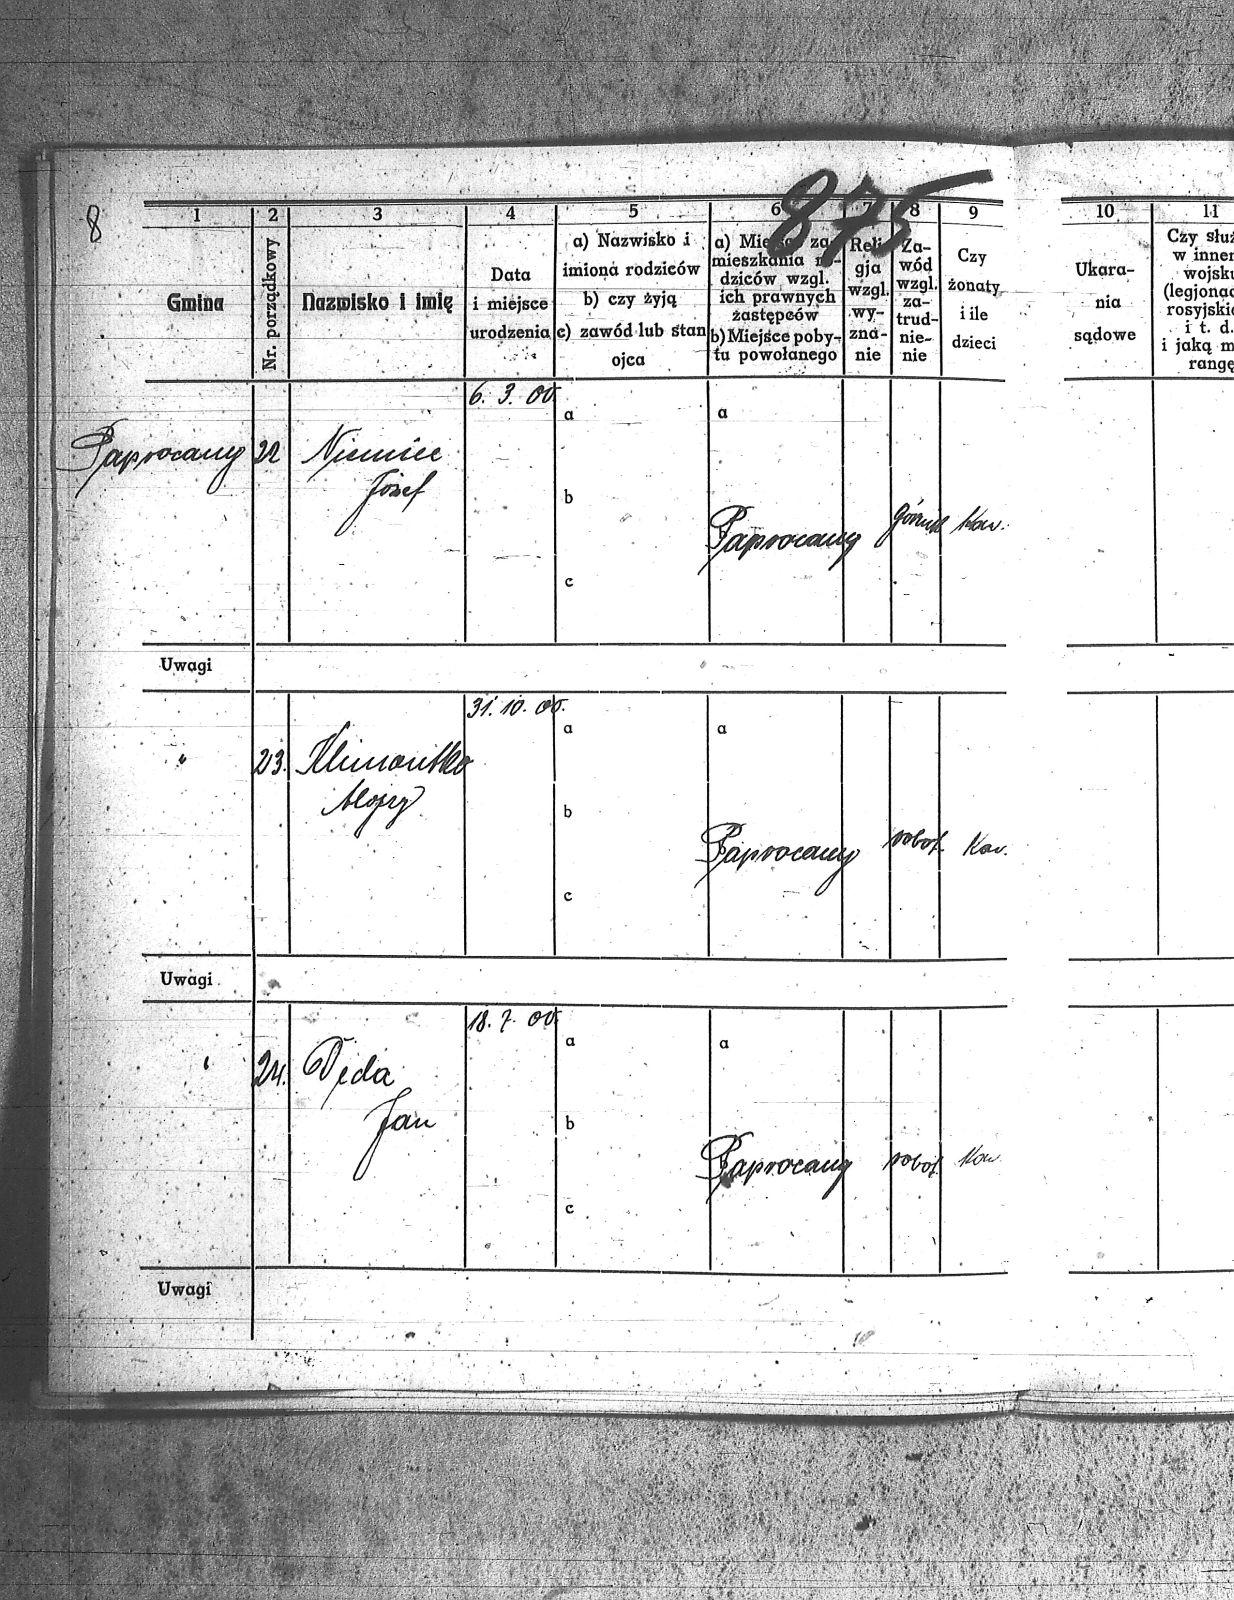 8
875
1 2 3 4 5 6 7 8 9 10 11
Gmina
Nr. porządkowy
Nazwisko i imię
Data
i miejsce
urodzenia
a) Nazwisko i
imiona rodziców
b) czy żyją
c) zawód lub stan
ojca
a) Miejsce za-
mieszkania ro-
dziców wzgl.
ich prawnych
zastępców
b) Miejsce poby-
tu powołanego
Reli-
gja
wzgl.
wy-
zna-
nie
Za-
wód
wzgl.
za-
trud-
nie-
nie
Czy
żonaty
i ile
dzieci
Ukara-
nia
sądowe
Czy służ
w innem
wojsku
(legjonac
rosyjskie
i t. d.
i jaką m
rangę
6. 3. 00.
a a
Paprocany 22 Niemiec
Józef
b
Paprocany górnik Kaw.
c
Uwagi
31. 10. 00.
a a
" 23. Klimontko
Alojzy
b
Paprocany robot. Kaw.
c
Uwagi
18. 7. 00.
a a
" 24. Jan
b
Paprocany robot. Kaw
c
Uwagi